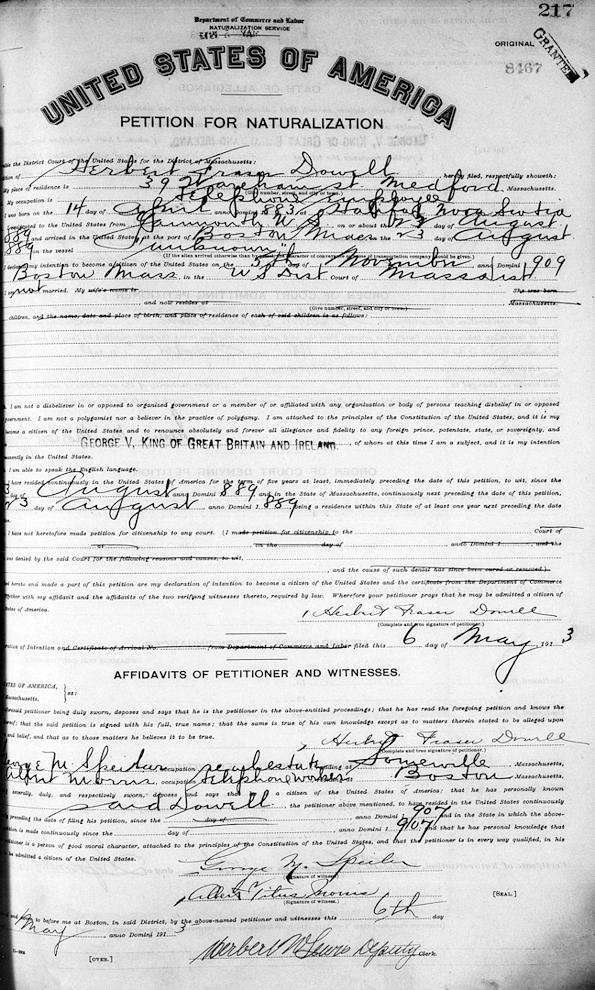 217
Department of Commerce and Labor
NATURALIZATION SERVICE
ORIGINAL
GRANTED
8467
UNITED STATES OF AMERICA
PETITION FOR NATURALIZATION
the District Court of the United States for the District of Massachusetts:
of Herbert Fraser Dowell hereby filed, respectfully showeth:
My place of residence is 39 St. Medford, Massachusetts.
(Give number, street, and city or town.)
My occupation is Telephone employee
I was born on the 14 day of April anno Domini 1 883 at Halifax Nova Scotia
emigrated to the United States from Yarmouth N.S. on or about the 23 day of August
889 and arrived in the United States at the port of Boston Mass the 23 day of August
889 on the vessel "unknown"
(If the alien arrived otherwise than by vessel, the character of conveyance or name of transportation company should be given.)
my intention to become a citizen of the United States on the day of November anno Domini 1 909
Boston Mass. in the U S Dist. Court of Mass. dist
I am not married. My wife's name is She was born
and now resides at Massachusetts.
(Give number, street, and city or town.)
children, and the name, date and place of birth, and place of residence of each of said children is as follows:
I am not a disbeliever in or opposed to organized government or a member of or affiliated with any organization or body of persons teaching disbelief in or opposed
government. I am not a polygamist nor a believer in the practice of polygamy. I am attached to the principles of the Constitution of the United States, and it is my
become a citizen of the United States and to renounce absolutely and forever all allegiance and fidelity to any foreign prince, potentate, state, or sovereignty, and
GEORGE V, KING OF GREAT BRITAIN AND IRELAND, of whom at this time I am a subject, and it is my intention
permanently in the United States.
I am able to speak the English language.
I have resided continuously in the United States of America for the term of five years at least, immediately preceding the date of this petition, to wit, since the
day of August anno Domini 1 889 and in the State of Massachusetts, continuously next preceding the date of this petition,
23 day of August anno Domini 1 889 being a residence within this State of at least one year next preceding the date
I have not heretofore made petition for citizenship to any court. (I made petition for citizenship to the Court of
at on the day of anno Domini 1 and the
was denied by the said Court for the following reasons and causes, to wit,
and the cause of such denial has since been cured or removed.)
hereto and made a part of this petition are my declaration of intention to become a citizen of the United States and the certificate from the Department of Commerce
together with my affidavit and the affidavits of the two verifying witnesses thereto, required by law. Wherefore your petitioner prays that he may be admitted a citizen of
States of America.
Herbert Fraser Dowell
(Complete and true signature of petitioner.)
of Intention and Certificate of Arrival No. from Department of Commerce and Labor filed this 6 day of May, 191 3
AFFIDAVITS OF PETITIONER AND WITNESSES.
STATES OF AMERICA,
Massachusetts. } ss:
petitioner being duly sworn, deposes and says that he is the petitioner in the above-entitled proceedings; that he has read the foregoing petition and knows the
that the said petition is signed with his full, true name; that the same is true of his own knowledge except as to matters therein stated to be alleged upon
and belief, and that as to those matters he believes it to be true.
Herbert Fraser Dowell
(Complete and true signature of petitioner.)
George M. occupation real estate residing at Somerville Massachusetts,
Albert Morris, occupation telephone worker Boston Massachusetts,
severally, duly, and respectively sworn, deposes and says that he is a citizen of the United States of America; that he has personally known
said Dowell, the petitioner above mentioned, to have resided in the United States continuously
preceding the date of filing his petition, since the day of anno Domini 1 907 and in the State in which the above-
petition is made continuously since the day of anno Domini 1 907 and that he has personal knowledge that
petitioner is a person of good moral character, attached to the principles of the Constitution of the United States, and that the petitioner is in every way qualified, in his
be admitted a citizen of the United States.
George M.
(Signature of witness.)
Albert Titus Morris
(Signature of witness.)
[SEAL.]
to before me at Boston, in said District, by the above-named petitioner and witnesses this 6th day
May anno Domini 191 3
Herbert W Lewis Deputy Clerk.
[OVER.]